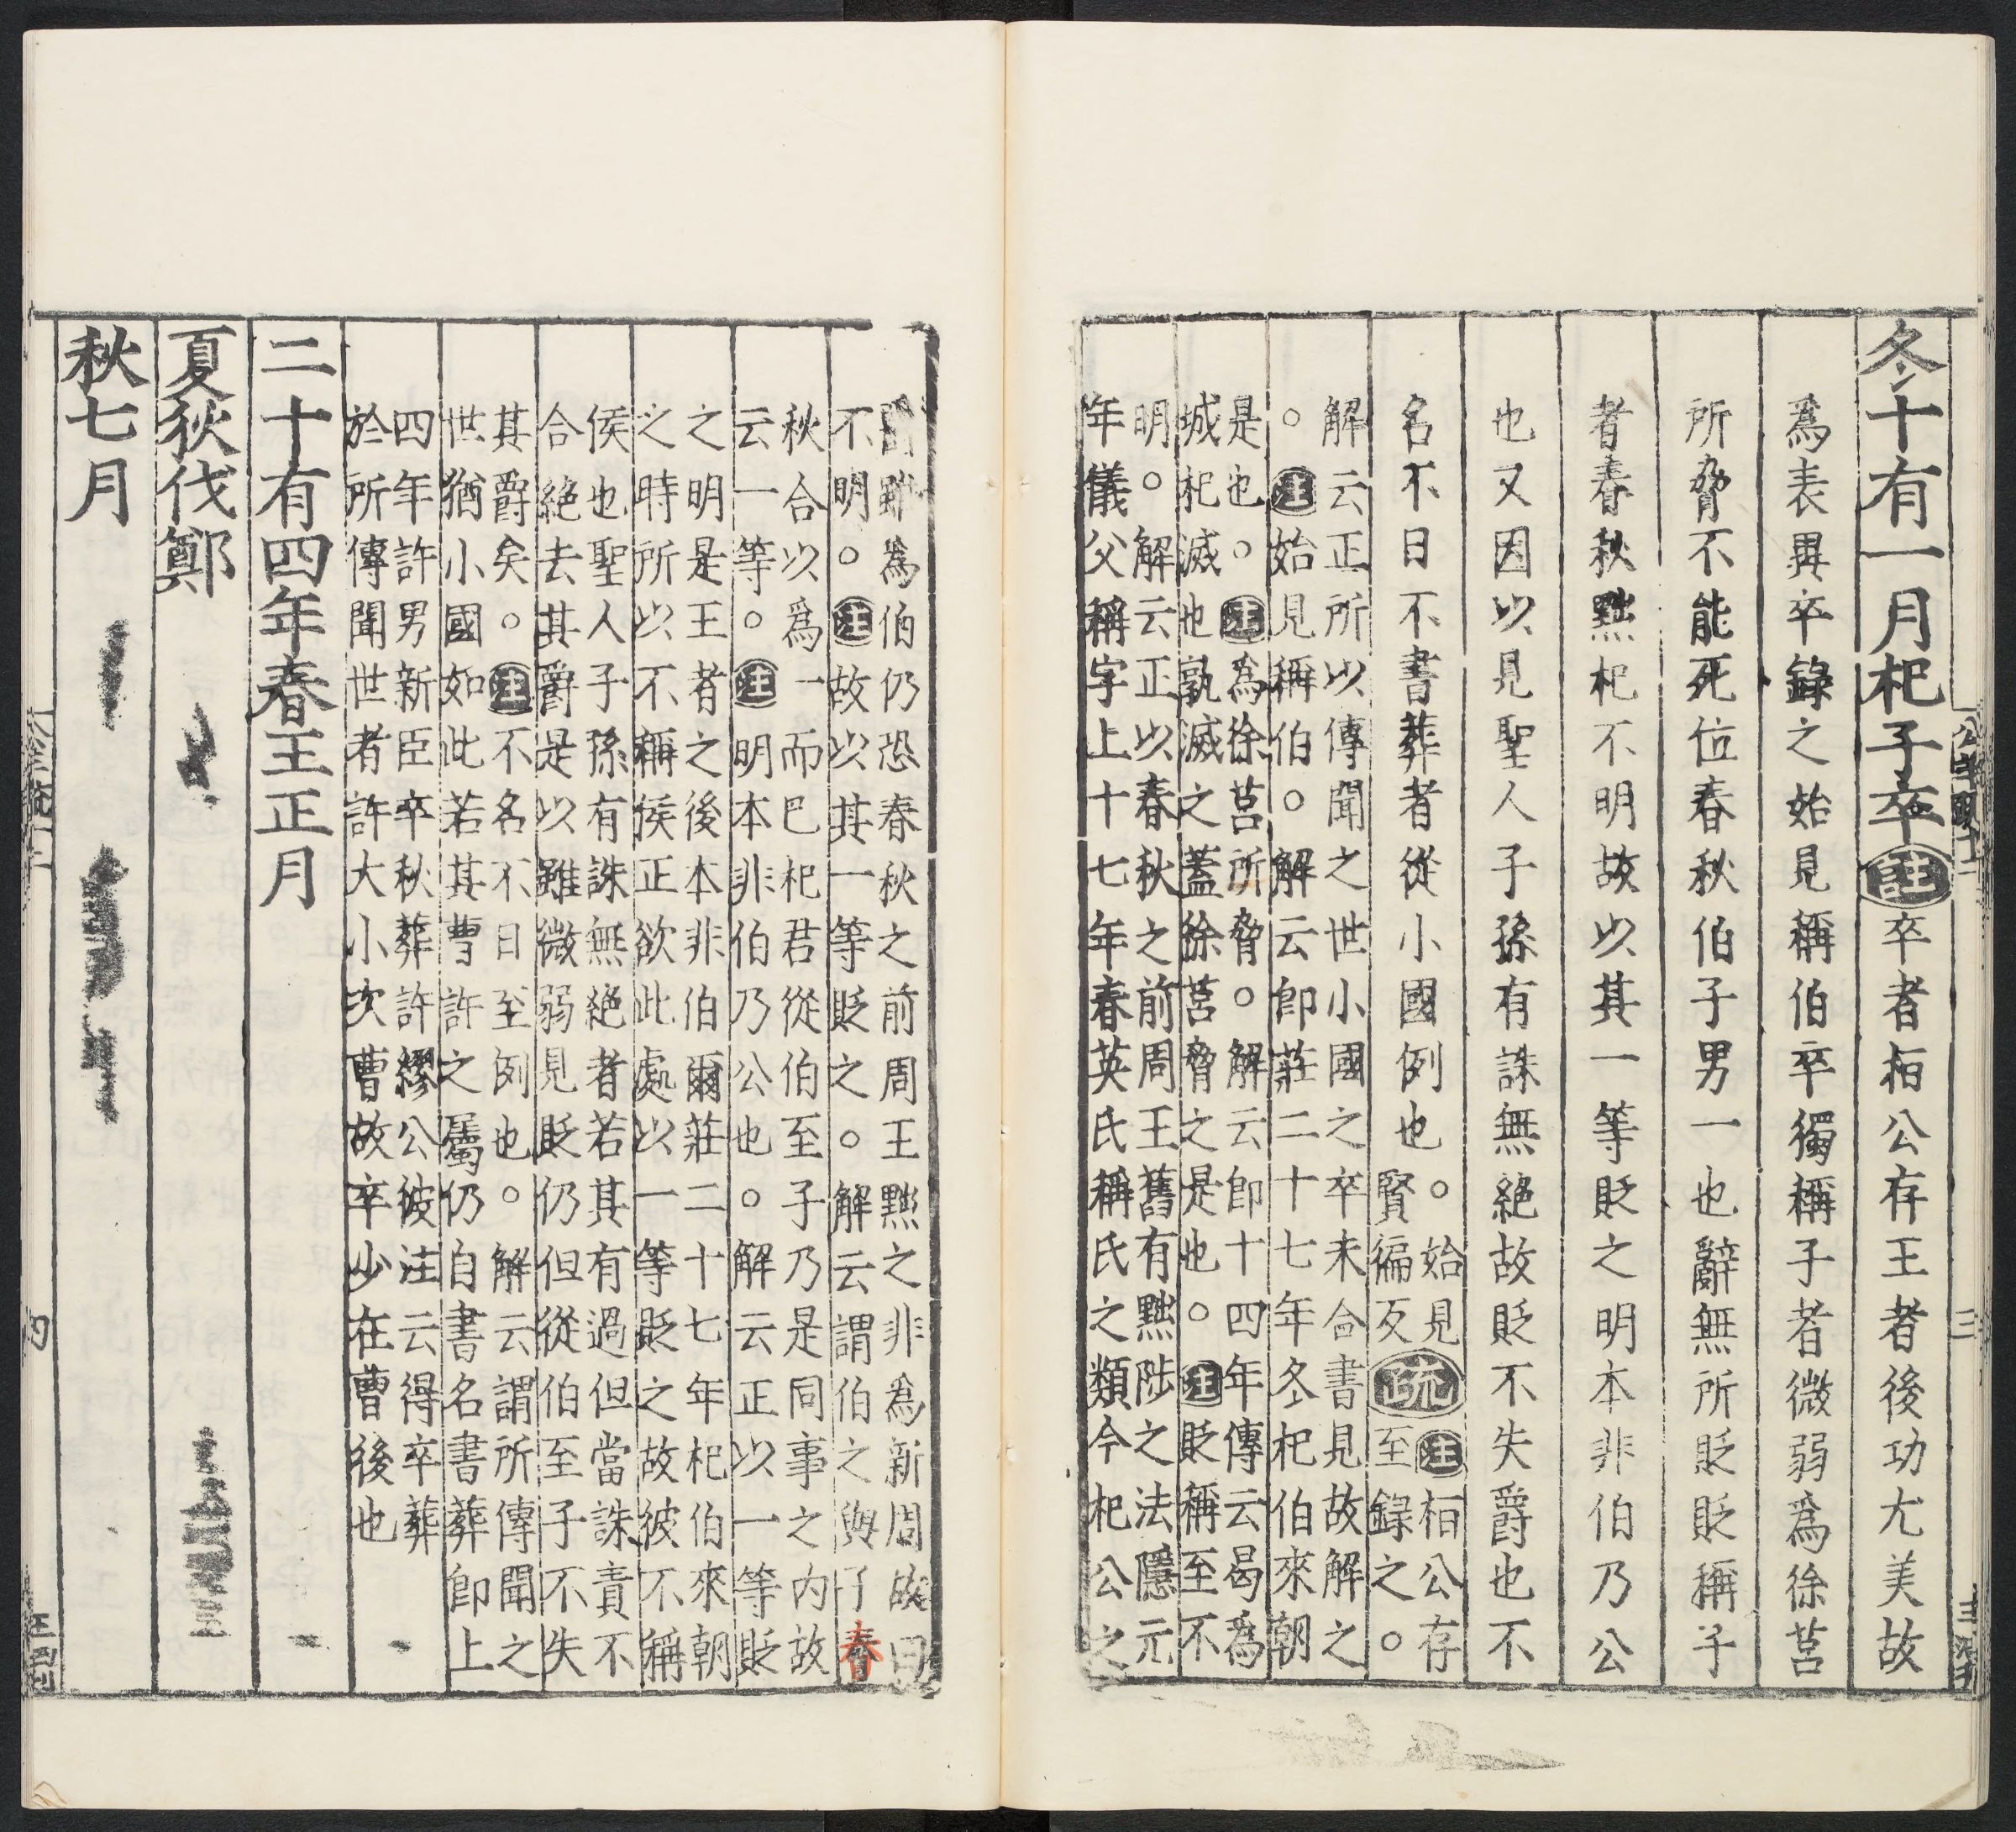 冬十有一月杞子卒註卒者桓公存王者後功尤美故
爲表異卒錄之始見稱伯卒獨稱子者微弱爲徐莒
所脅不能死位春秋伯子男一也辭無所貶貶稱子
者春秋黜杞不明故以其一等貶之明本非伯乃公
也又因以見聖人子孫有誅無絕故貶不失爵也不
名不日不書葬者從小國例也。始見
賢徧反疏注桓公存
至錄之。
解云正所以傳聞之世小國之卒未合書見故解之
。注始見稱伯。解云卽莊二十七年冬杞伯來朝
是也。注爲徐莒所脅。解云卽十四年傳云曷爲
城杞滅也孰滅之蓋徐莒脅之是也。注貶稱至不
明。解云正以春秋之前周王舊有黜陟之法隱元
年儀父稱字上十七年春英氏稱氏之類今杞公之
爲伯仍恐春秋之前周王黜之非爲新周故曰
不明。注故以其一等貶之。解云謂伯之與子春
秋合以爲一而巴杞君從伯至子乃是同事之內故
云一等。注明本非伯乃公也。解云正以一等貶
之明是王者之後本非伯爾莊二十七年杞伯來朝
之時所以不稱侯正欲此處以一等貶之故彼不稱
侯也聖人子孫有誅無絕者若其有過但當誅責不
合絕去其爵是以雖微弱見貶仍但從伯至子不失
其爵矣。注不名不日至例也。解云謂所傳聞之
世猶小國如此若其曹許之屬仍自書名書葬卽上
四年許男新臣卒秋葬許繆公彼注云得卒葬
於所傳聞世者許大小次曹故卒少在曹後也
二十有四年春王正月
夏狄伐鄭
秋七月